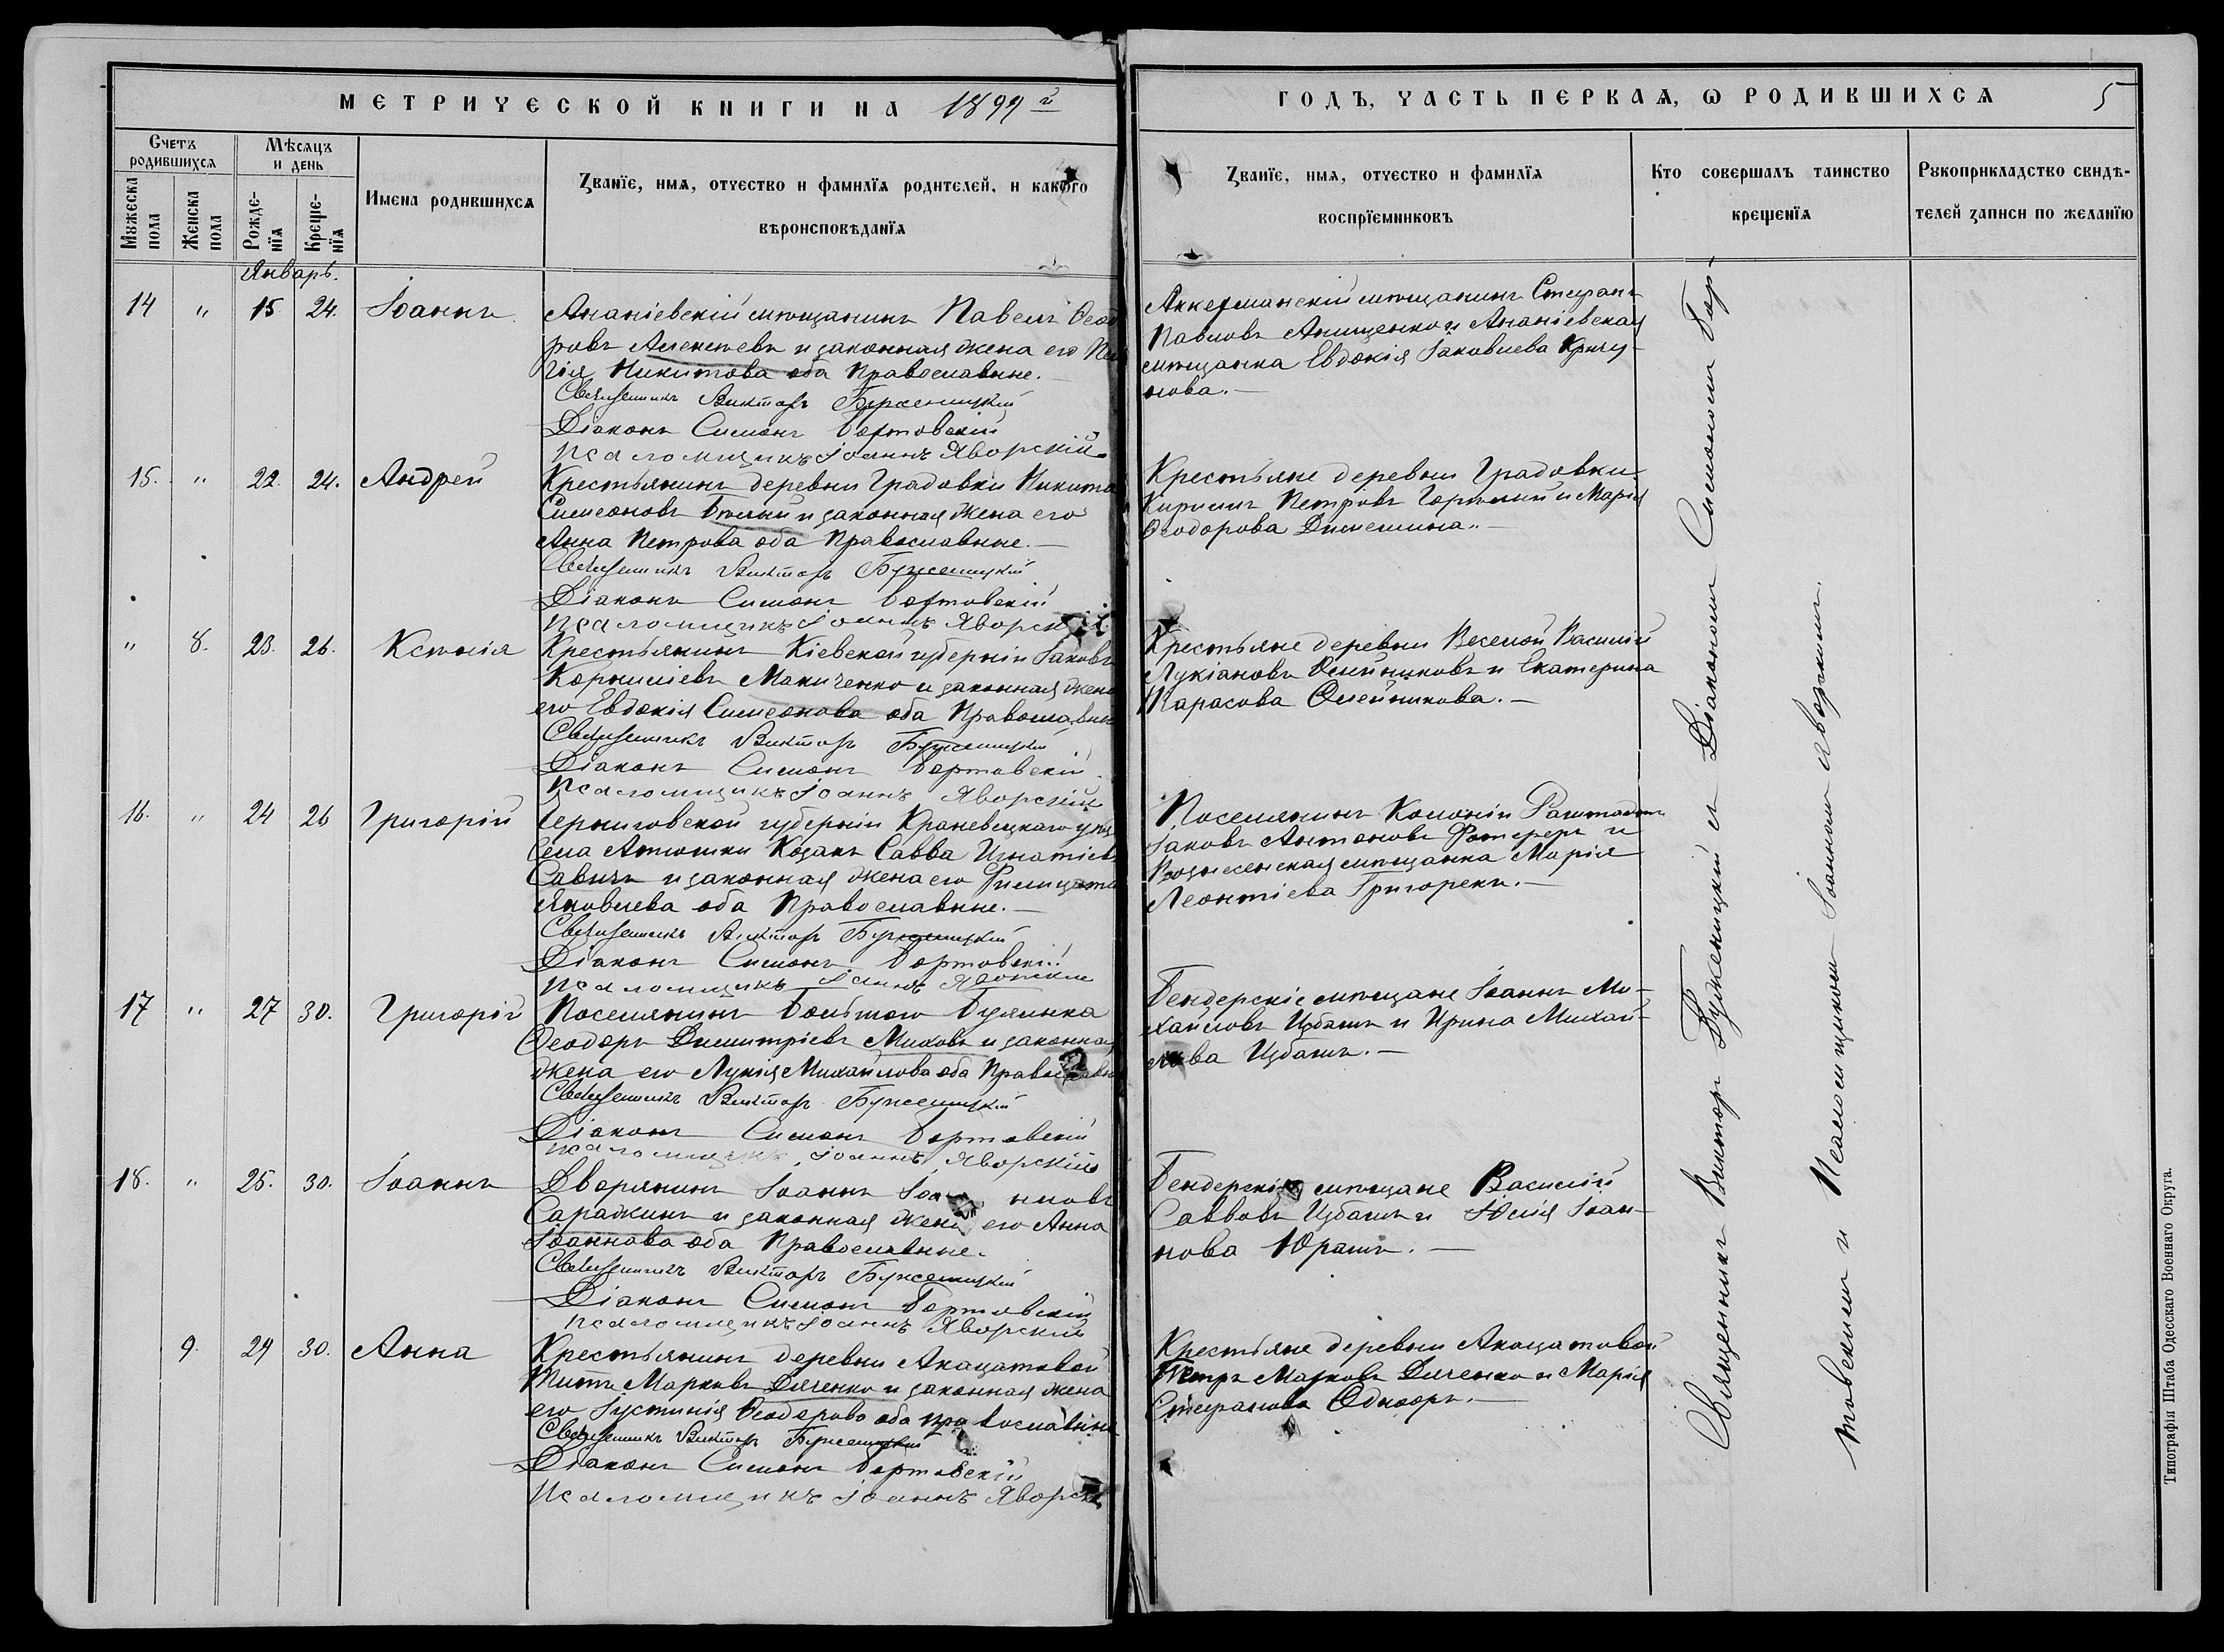 МЕТРИЧЕСКОЙ КНИГИ НА 1899 г
Счетъ родившихся
Мѣсяцъ и день
Мужеска пола
Женска пола
Рожденія
Крещенія
Имена родившихся
Званіе, имя, отчество и фамилія родителей, и какого
вѣроисповѣданія
Январь.
14 " 15 24. Іоаннъ
Ананіевскій мѣщанинъ Павелъ Ѳеодо
ровъ Алексѣевъ и законная жена его
Никитова оба Православные.
Священникъ Викторъ Буженицкій
Діаконъ Симонъ Бортовскій
Псаломщикъ Іоаннъ Яворскій
15. " 22. 24. Андрей
Крестьянинъ деревни Градовки Никита
Симеоновъ Бѣлый и законная жена его
Анна Петрова оба Православные.
Священникъ Викторъ Буженицкій
Діаконъ Симонъ Бортовскій
Псаломщикъ Іоаннъ Яворскій
" 8. 23. 26. Ксенія
Крестьянинъ Кіевской губерніи Іаковъ
Корниліевъ Макиченко и законная жена
его Евдокія Симеонова оба Православные
Священникъ Викторъ Буженицкій
Діаконъ Симонъ Бортовскій
Псаломщикъ Іоаннъ Яворскій
16. " 24 26 Григорій
Черниговской губерніи Краневецкаго уѣз
Села Атюшки Козакъ Савва Игнатіевъ
Савичъ и законная жена его
Яковлева оба Православные.
Священникъ Викторъ Буженицкій
Діаконъ Симонъ Бортовскій
Псаломщикъ Іоаннъ Яворскій
17 " 27 30. Григорій
Поселянинъ Большого Буялыка
Ѳеодоръ Димитріевъ Миховъ и законная
жена его Лукія Михайлова оба Православн
Священникъ Викторъ Буженицкій
Діаконъ Симонъ Бортовскій
Псаломщикъ Іоаннъ Яворскій
18. " 25. 30. Іоаннъ
Дворянинъ Іоаннъ Іоанновъ
Сараджинъ и законная жена его Анна
Іоаннова оба Православные.
Священникъ Викторъ Буженицкій
Діаконъ Симонъ Бортовскій
Псаломщикъ Іоаннъ Яворскій
9. 29 30. Анна
Крестьянинъ деревни Акацатовой
Титъ Марковъ Дяченко и законная жена
его Іустинія Ѳеодорова оба православные
Священникъ Викторъ Буженицкій
Діаконъ Симонъ Бортовскій
Псаломщикъ Іоаннъ Яворск
ГОДЪ, ЧАСТЬ ПЕРВАЯ, Ѡ РОДИВШИХСЯ 5
Званіе, имя, отчество и фамилія
воспріемниковъ
Кто совершалъ таинство
крещенія
Рукоприкладство свидѣ-
телей записи по желанію
Аккерманскій мѣщанинъ Стефанъ
Павловъ Анищенко и Ананіевская
мѣщанка Евдокія Іаковлева Кричу-
нова.
Крестьяне деревни Градовки
Кириллъ Петровъ Гортлый и Марія
Ѳеодорова
Крестьяне деревни Веселой Василій
Лукіановъ Олейниковъ и Екатерина
Тарасова Олейникова.
Поселянинъ Колоніи Раштадтъ
Іаковъ Антоновъ и
Вознесенская мѣщанка Марія
Леонтіева Григорекъ.
Бендерскіе мѣщане Іоаннъ Ми-
хайловъ Цыбашъ и Ирина Михай-
лова Цыбашъ.
Бендерскіе мѣщане Василій
Саввовъ Цыбашъ и Юлія Іоан-
нова Юрашъ.
Крестьяне деревни Акацатовой
Петръ Марковъ Дяченко и Марія
Стефанова
Священникъ Викторъ Буженицкій съ Діакономъ Симономъ Бор-
товскимъ и Псаломщикомъ Іоанномъ Яворскимъ.
Типографія Штаба Одесскаго Военнаго Округа.